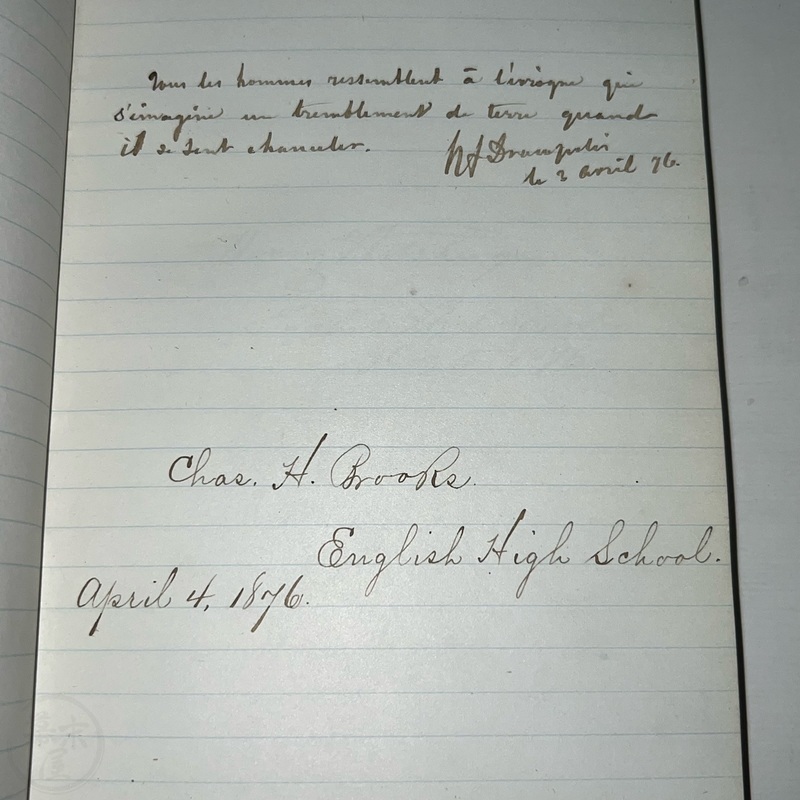 Tous les hommes ressemblent à l'ivrogne qui
s'imagine un tremblement de terre quand
il se sent chanceler.
le 3 avril 76.
Chas. H. Brooks.
English High School.
April 4, 1876.